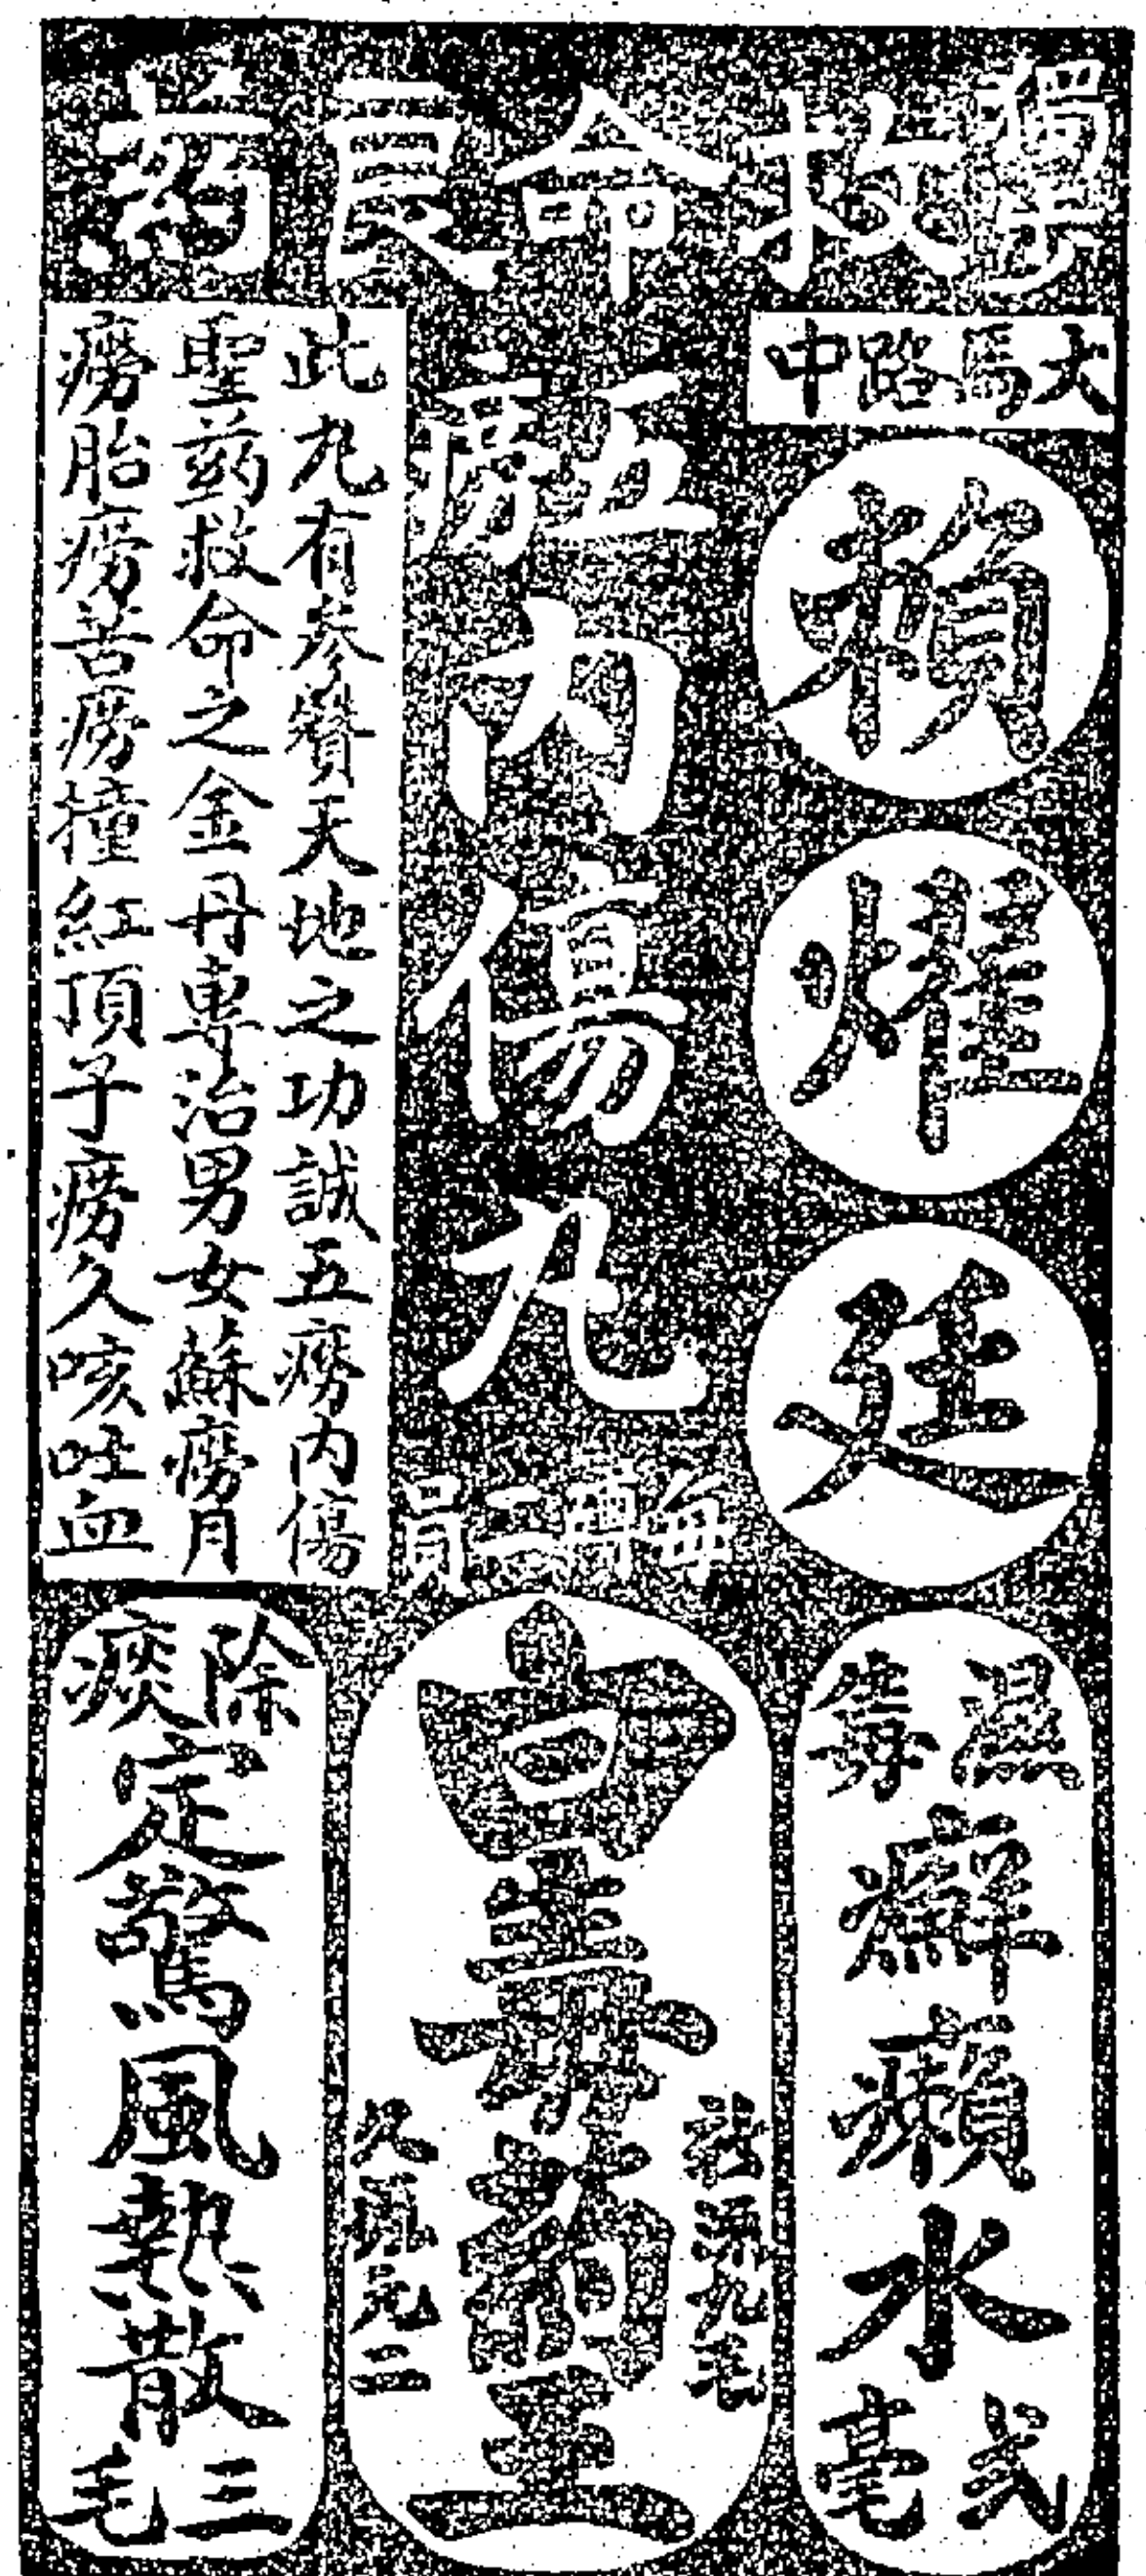 獨步救命良葯
大馬路中
賴燿廷
五癆內傷丸
此丸有參贊天地之功誠五癆內傷
聖葯救命之金丹專治男女蘇癆月
癆胎癆苦癆撞紅頂子癆久咳吐血
濕毒癬癩水弍毫
白毒葯王
久濁元二
除痰定驚風熱散三毛